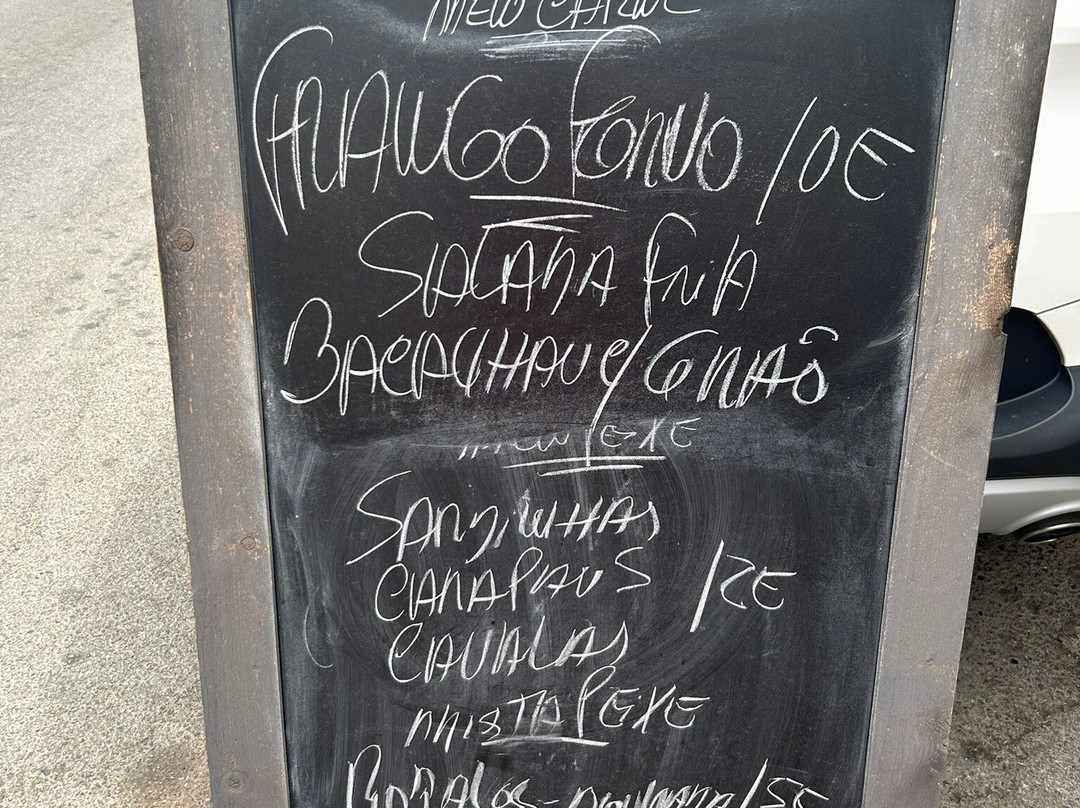 MENU CARNE
FRANGO FORNO /10E
SALADA FRIA
BACALHAU C/ GRÃO
MENU PEXE
SARDINHAS
CARAPAUS 12E
CAVALAS
MISTA PEXE